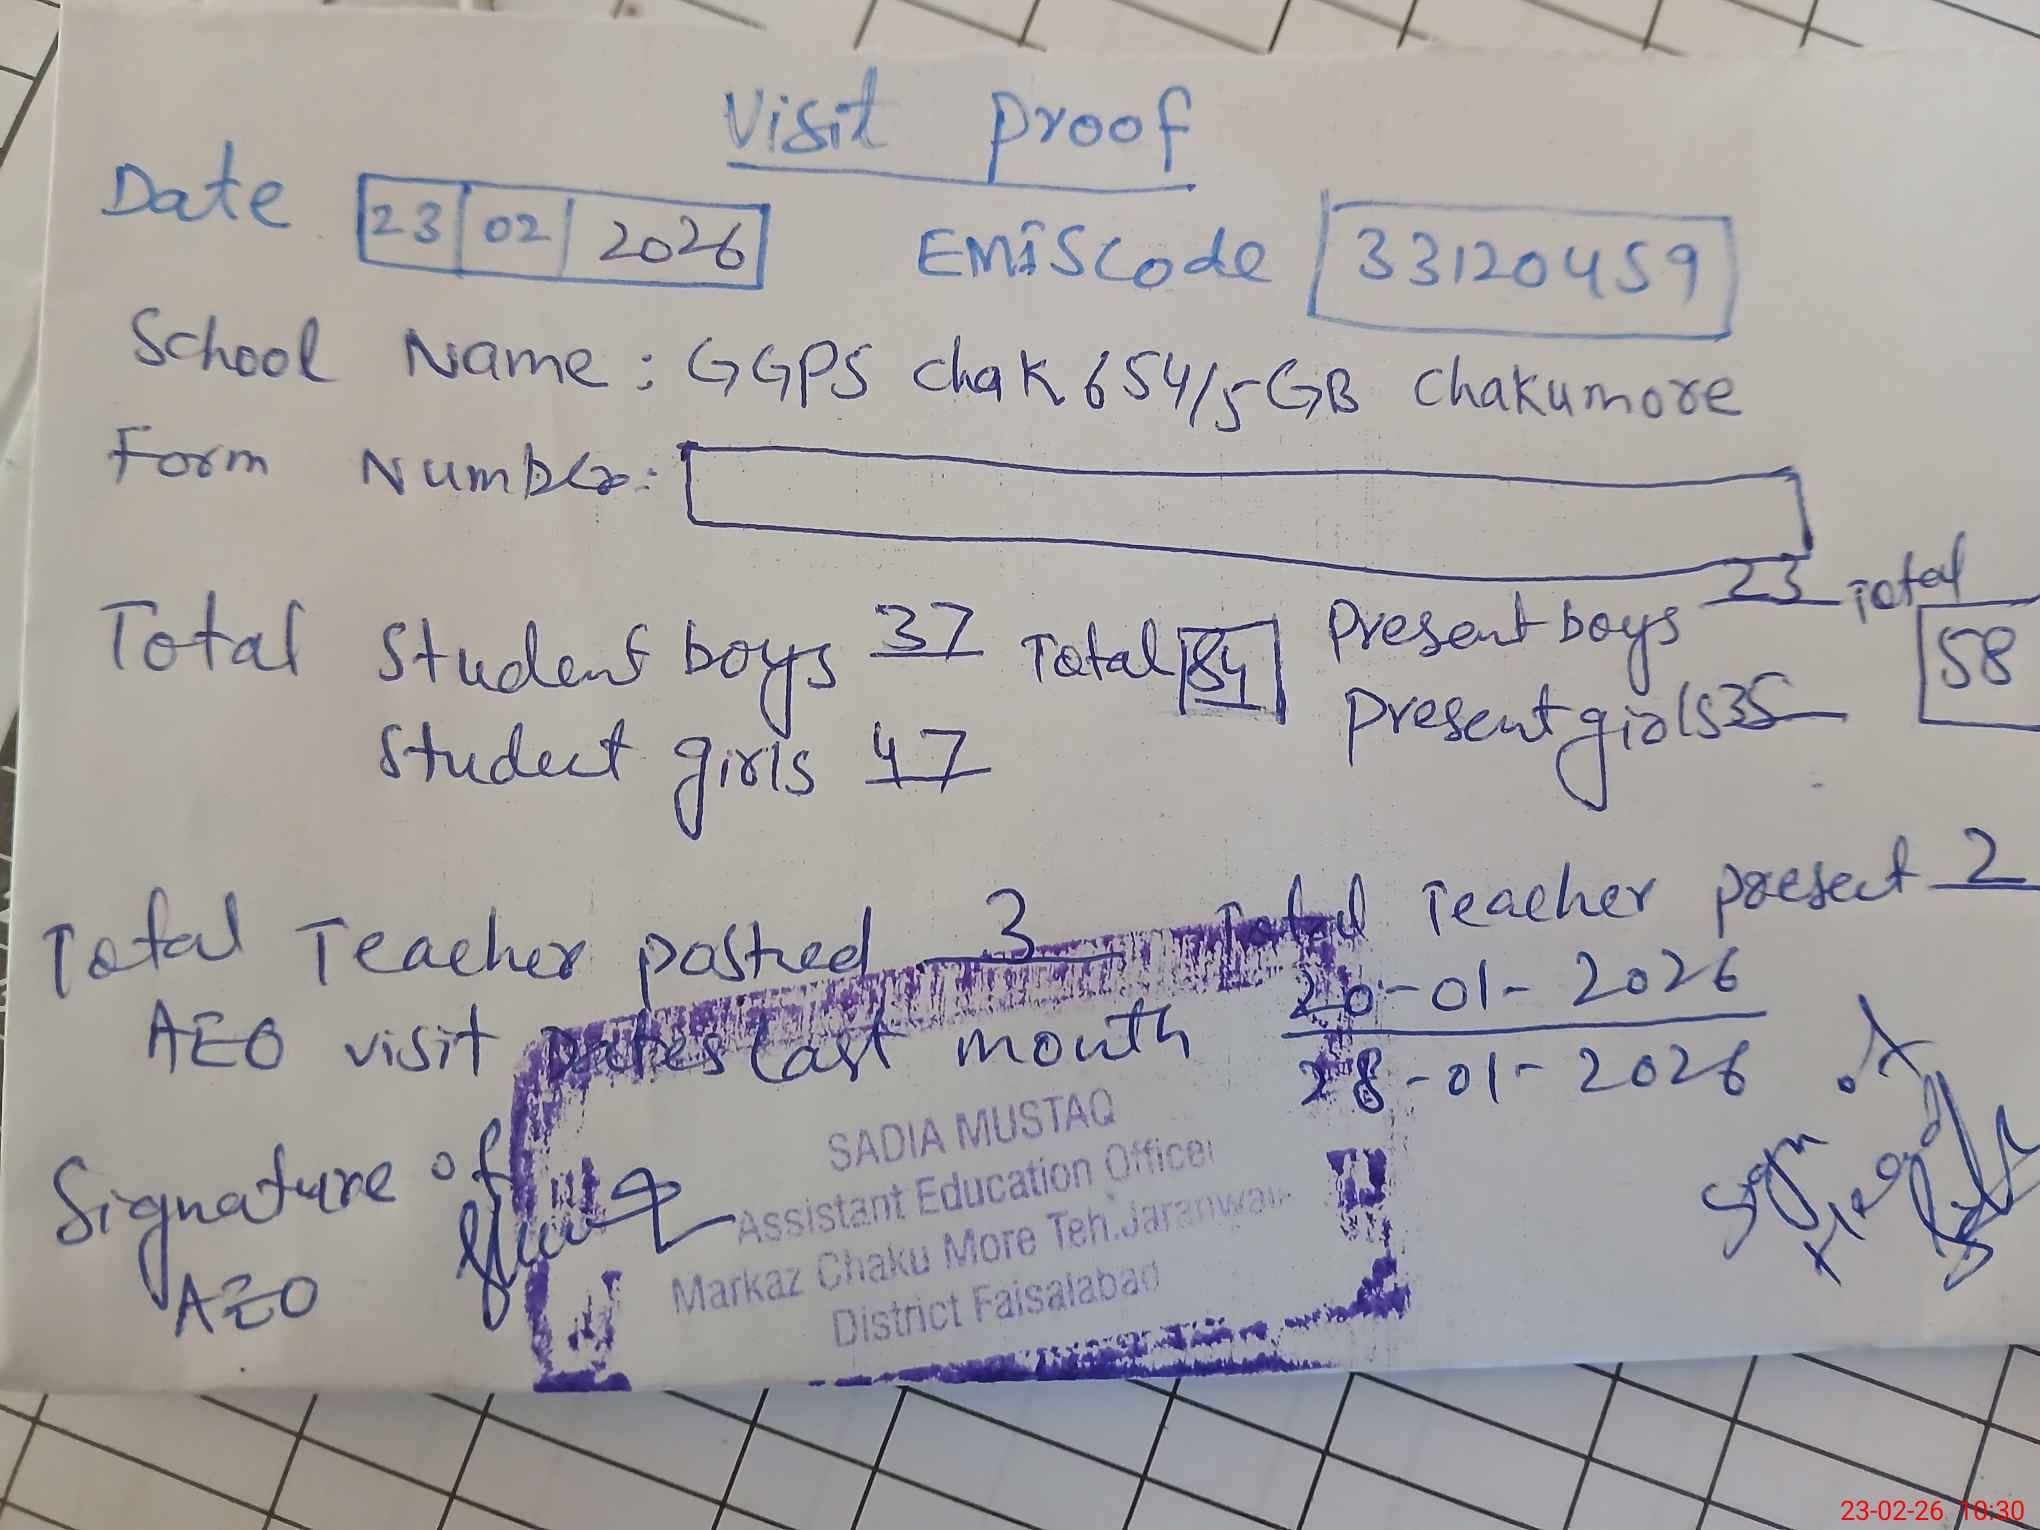 Visit Proof
Date 23 02 2026 EMIS Code 33120459
School Name: GGPS Chak 654/5GB Chakumore
Form Number:
Total Student boys 37 Total 84 Present boys 23 Total 58
Student girls 47 Present girls 35
Total Teacher postred 3 Total Teacher present 2
AEO visit Dates Last month 20-01-2026
28-01-2026
Signature of
AEO
SADIA MUSTAQ
Assistant Education Officer
Markaz Chaku More Teh. Jaranwala
District Faisalabad
23-02-26 10:30